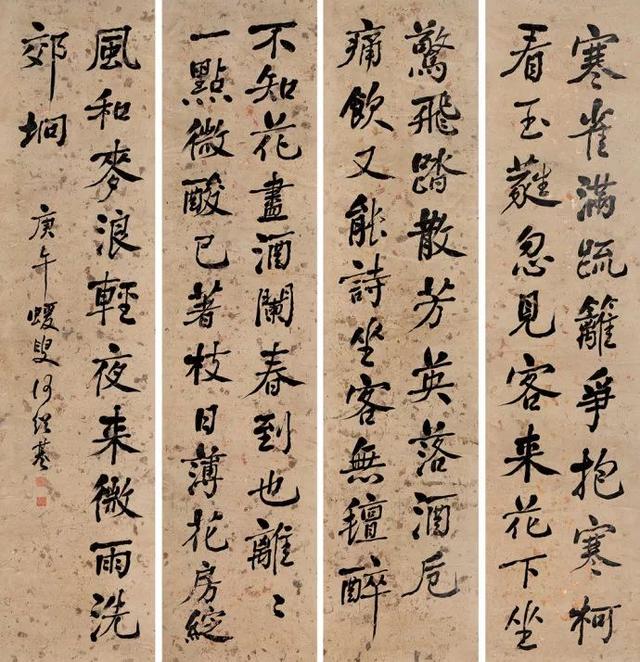 寒雀滿疏籬爭抱寒柯
看玉蕤忽見客來花下坐
驚飛踏散芳英落酒卮
痛飲又能詩坐客無氊醉
不知花盡酒闌春到也離〻
一點微酸已著枝日薄花房綻
風和麥浪輕夜來微雨洗
郊坰
庚午蝯叟何紹基